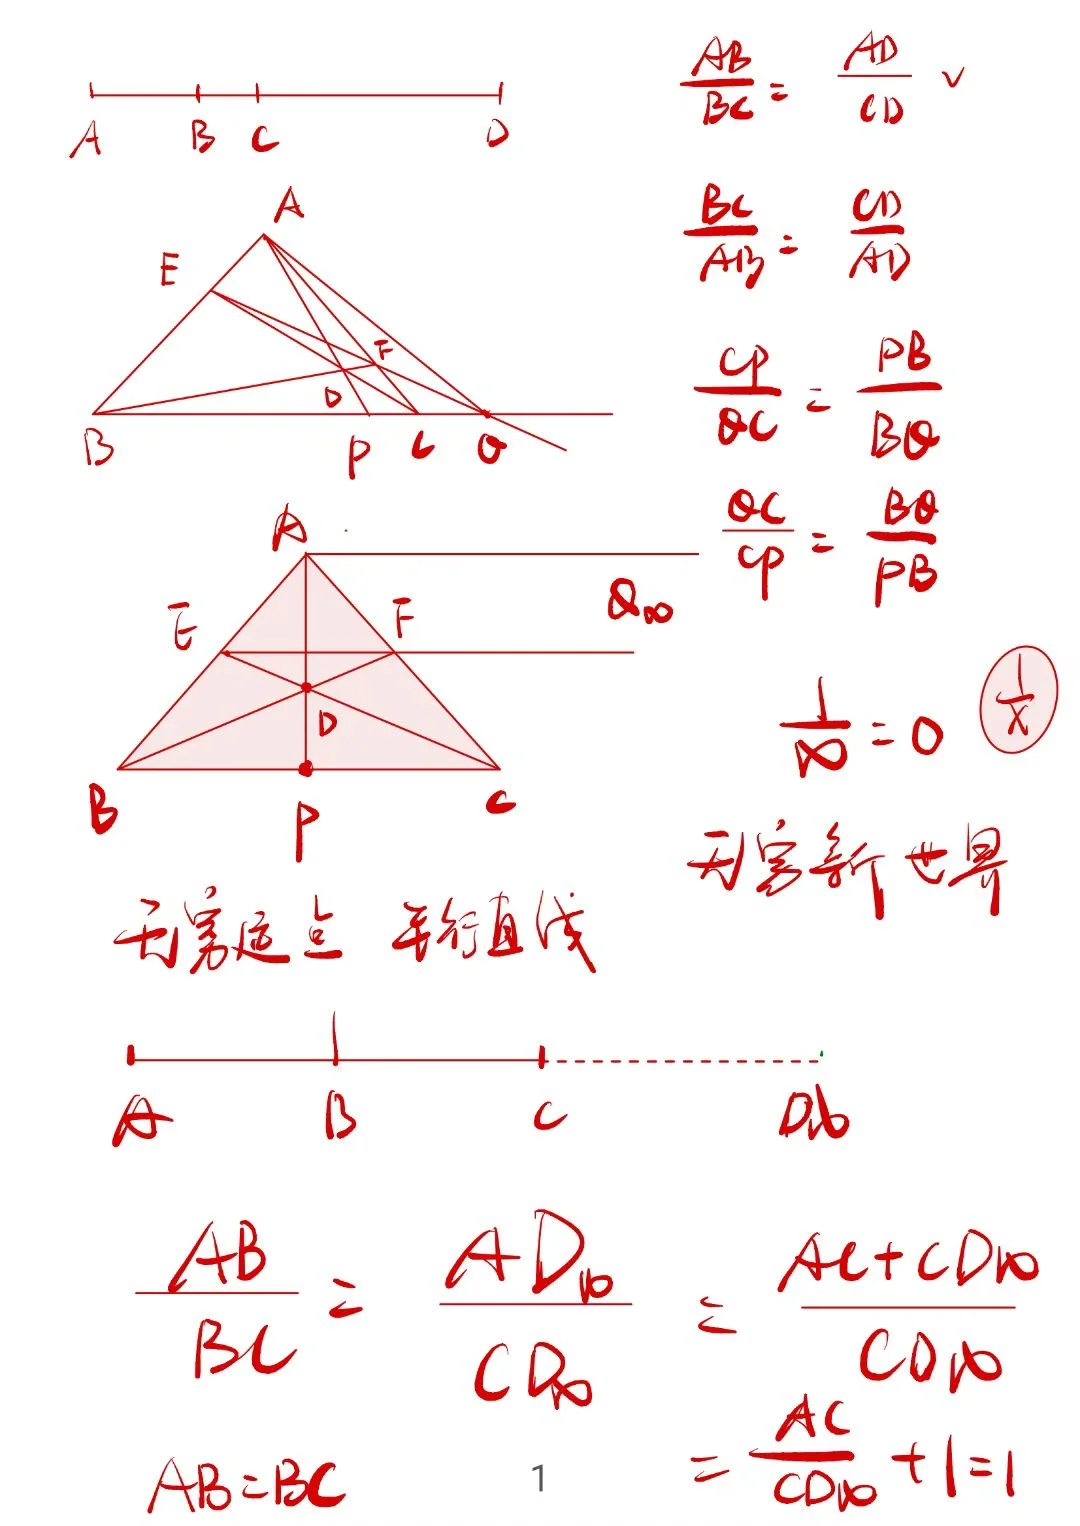 AB/BC = AD/CD ✓
A B C D
BC/AB = CD/AD
A
E
F
D
B P C Q
CP/QC = PB/BQ
QC/CP = BQ/PB
A
Q∞
E F
D
B P C
1/∞ = 0
1/x
无穷新世界
无穷远点 平行直线
A B C D∞
AB/BC = AD∞/CD∞ = AC+CD∞/CD∞
= AC/CD∞ + 1 = 1
AB=BC
1